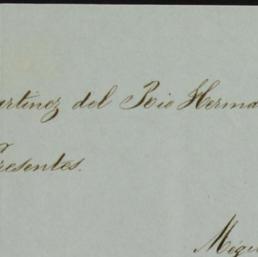 artinez del Rio Herma
Presentes.
Méji